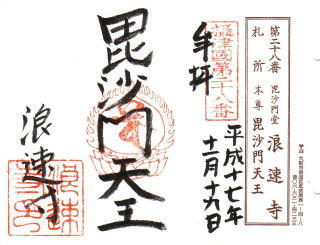 第二十八番 毘沙門堂 浪速寺
札所 本尊 毘沙門天王
奉拝
攝津國第二十八番
平成十七年
十二月十九日
毘沙門天王
浪速寺